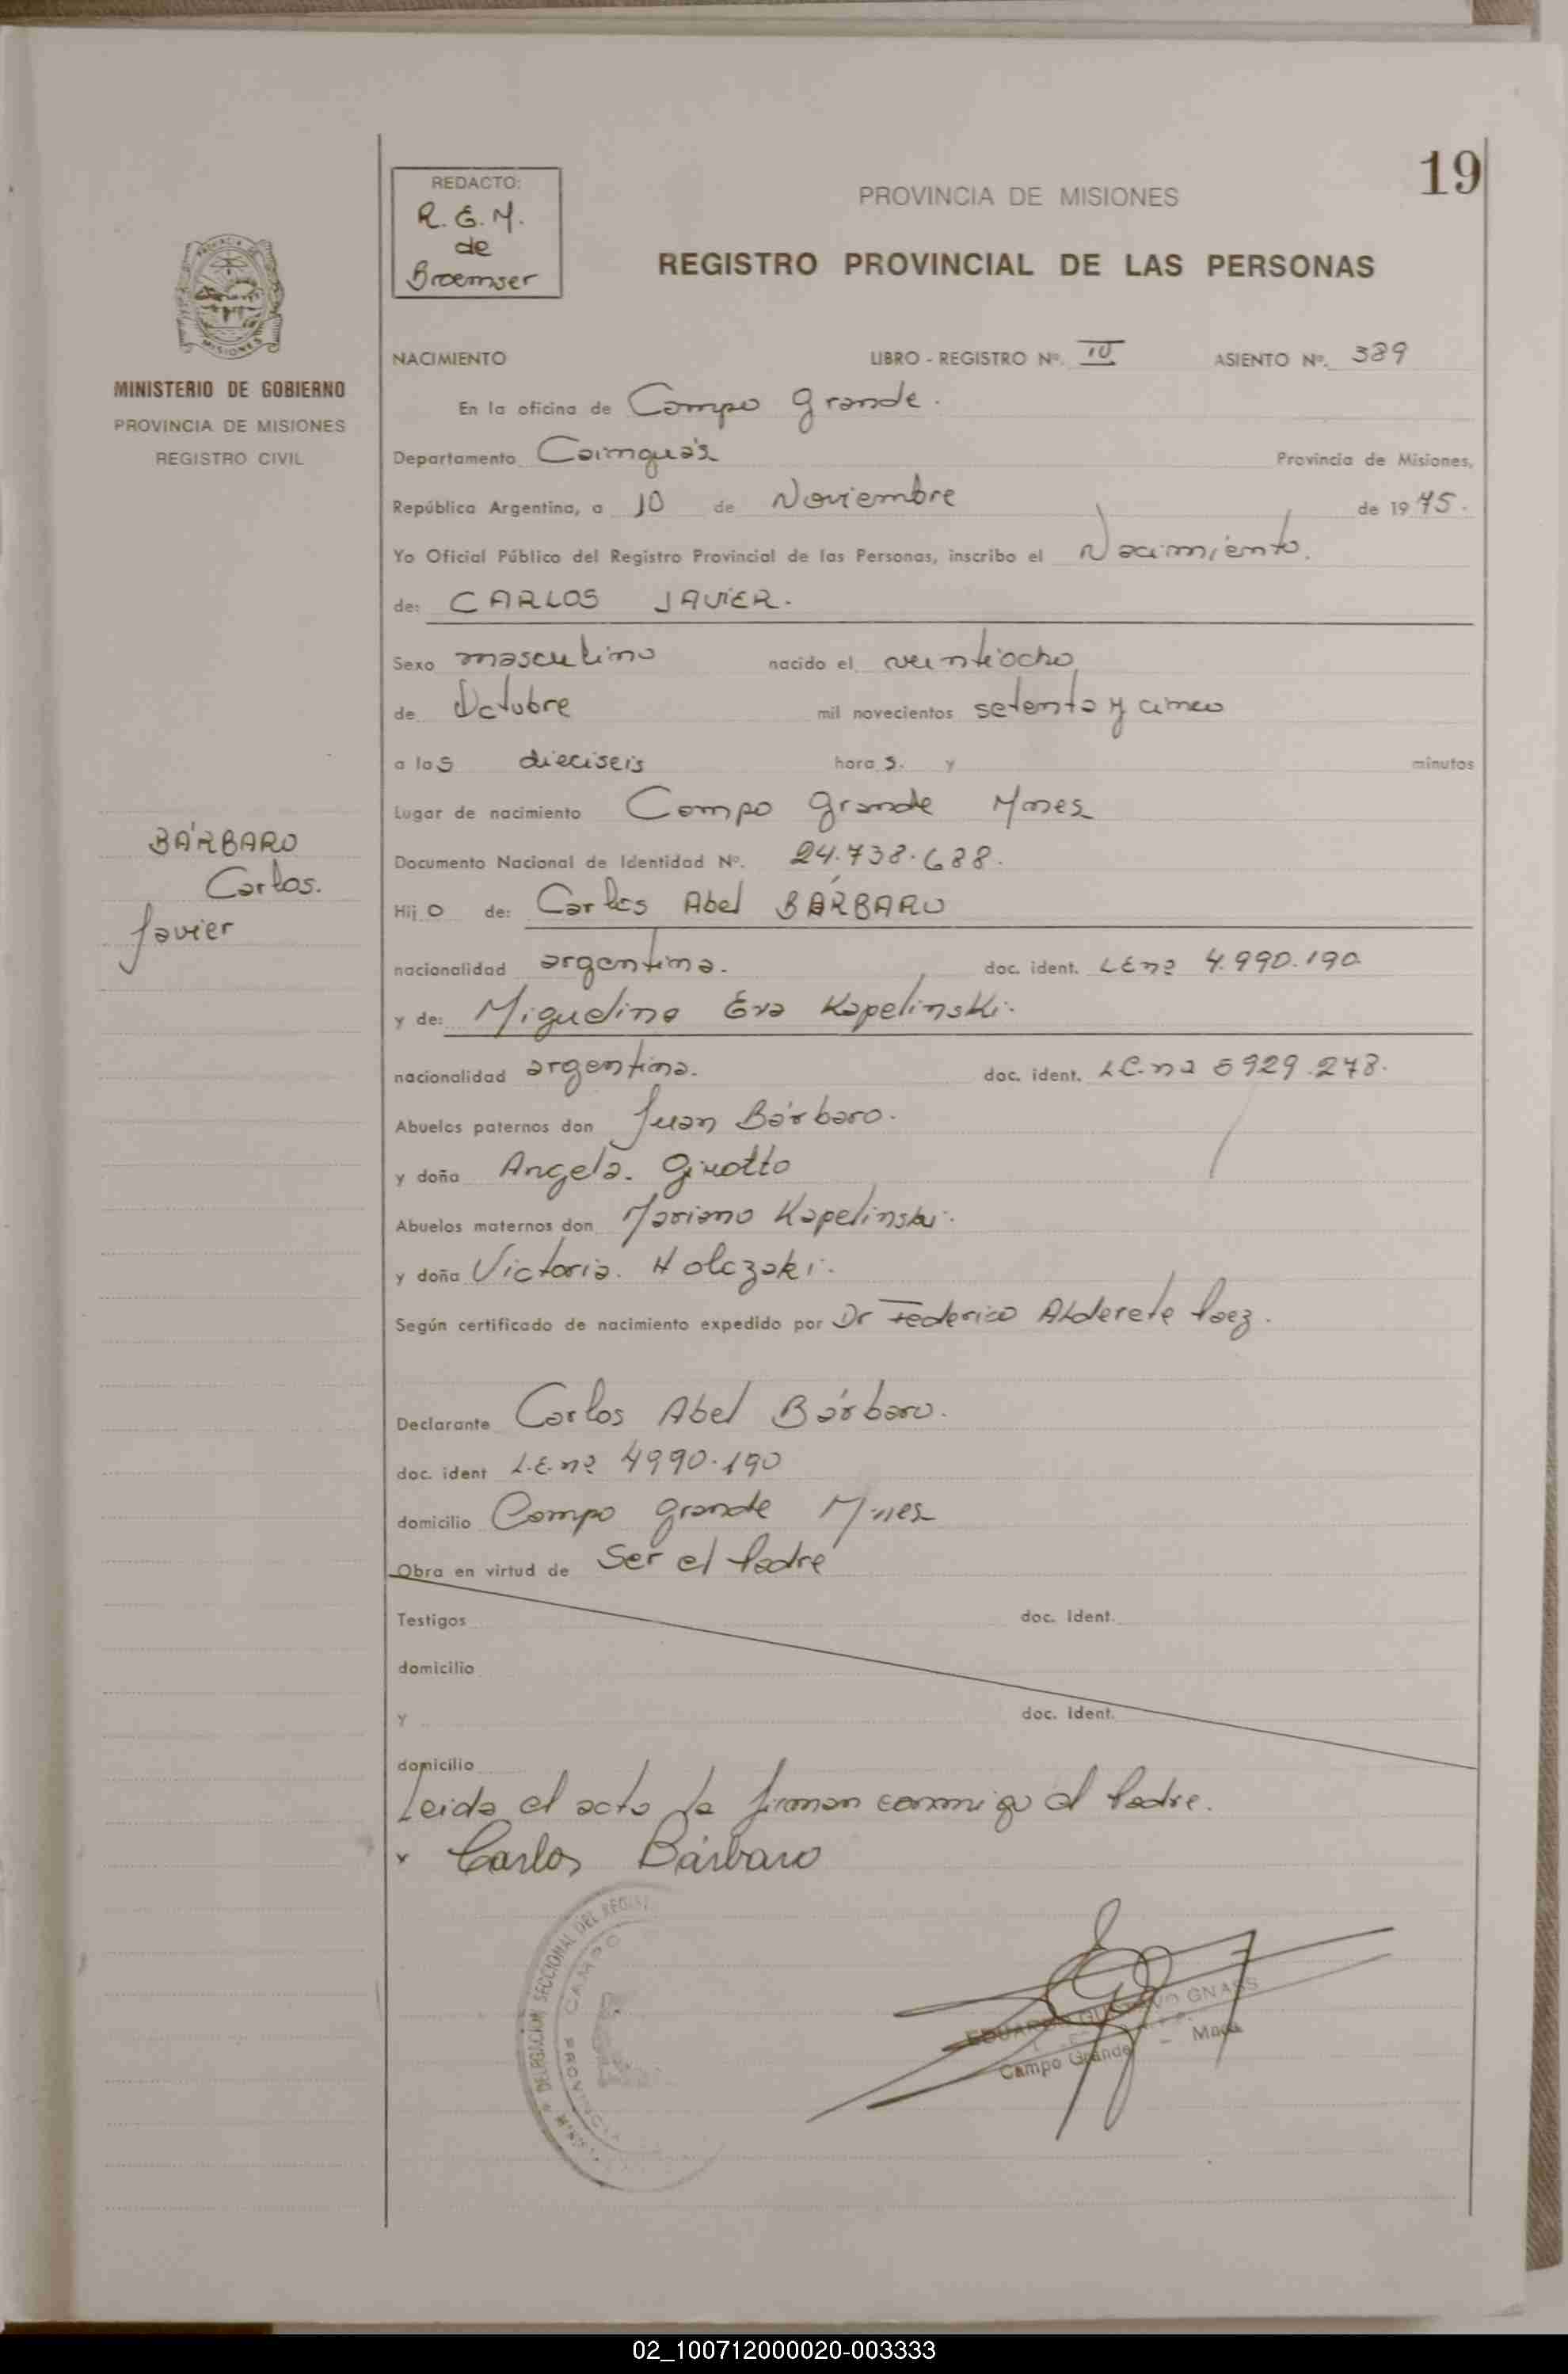 19
REDACTO:
R. E. M.
de
Broemser
PROVINCIA DE MISIONES
REGISTRO PROVINCIAL DE LAS PERSONAS
MISIONES
MINISTERIO DE GOBIERNO
PROVINCIA DE MISIONES
REGISTRO CIVIL
BÁRBARO
Carlos.
Javier
NACIMIENTO LIBRO - REGISTRO Nº. ASIENTO Nº. 389
En la oficina de Campo Grande.
Departamento Cainguás Provincia de Misiones,
República Argentina, a 10 de Noviembre de 1975.
Yo Oficial Público del Registro Provincial de las Personas, inscribo el Nacimiento.
de: CARLOS JAVIER.
Sexo masculino nacido el veintiocho
de Octubre mil novecientos setenta y cinco
a las dieciseis horas. y minutos
Lugar de nacimiento Campo Grande Mnes
Documento Nacional de Identidad Nº. 24.738.688.
Hijo de: Carlos Abel BÁRBARO
nacionalidad argentina. doc. ident. LE nº 4.990.190
y de: Miguelina Eva Kapelinski.
nacionalidad argentina. doc. ident. LC. nº 5929.278.
Abuelos paternos don Juan Bárbaro.
y doña Angela. Girotto
Abuelos maternos don Mariano Kapelinski.
y doña Victoria. Holczaki.
Según certificado de nacimiento expedido por Dr Federico Alderete Paez.
Declarante Carlos Abel Bárbaro.
doc. ident L.E. nº 4990.190
domicilio Campo Grande Mnes
Obra en virtud de Ser el Padre
Testigos doc. ident.
domicilio
Y doc. ident.
domicilio
Leida el acta la firman conmigo el Padre.
x Carlos Bárbaro
DELEGACION SECCIONAL DEL REGIST
CAMPO
PROVINCIA
EDUARDO GUSTAVO GNASS
Campo Grande - Mnes
02_100712000020-003333